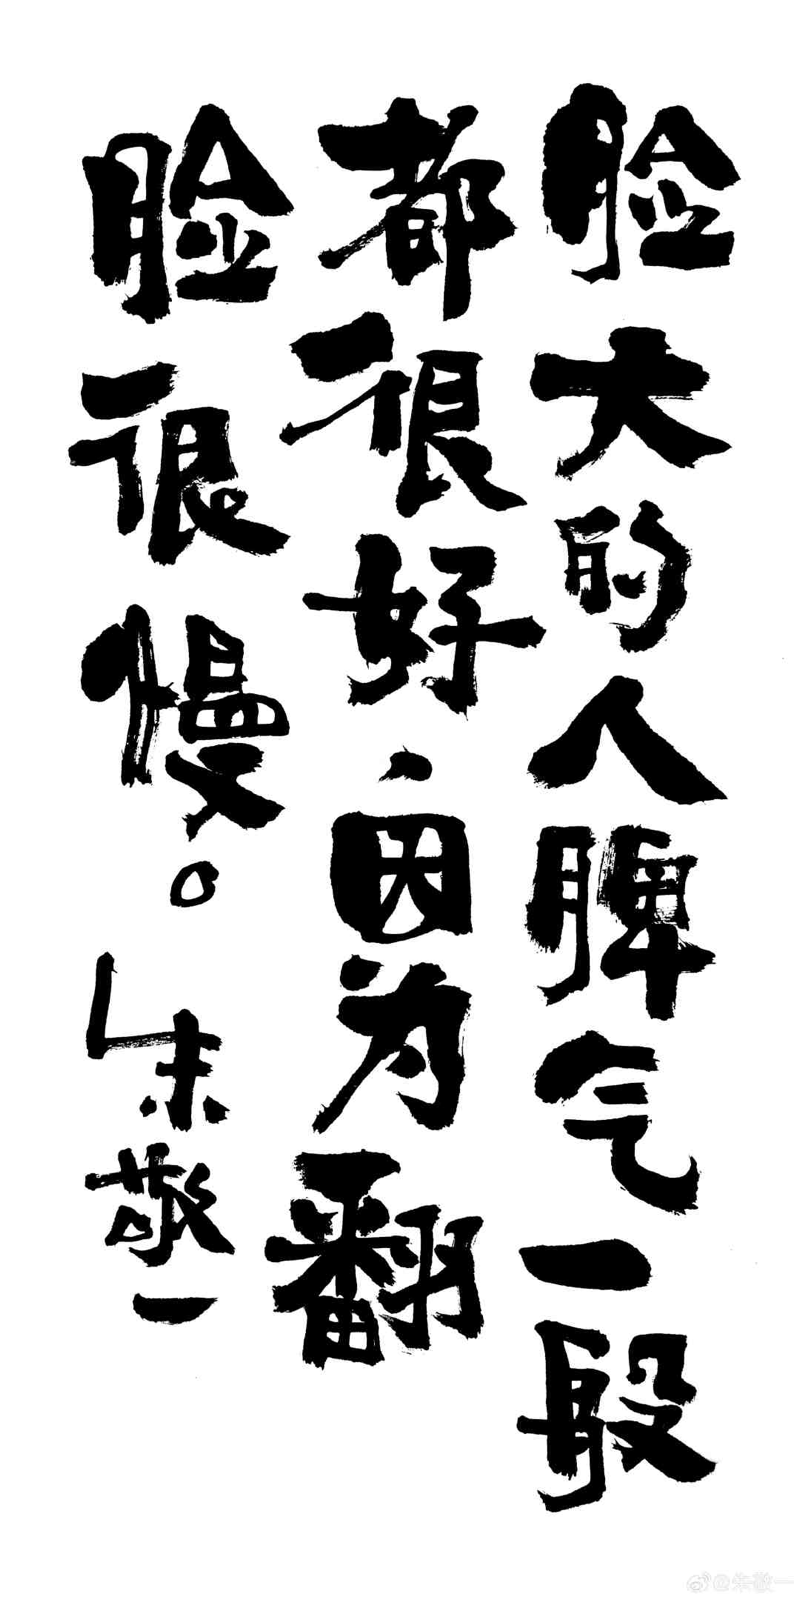 脸大的人脾气一般
都很好、因为翻
脸很慢。朱敬一
@朱敬一